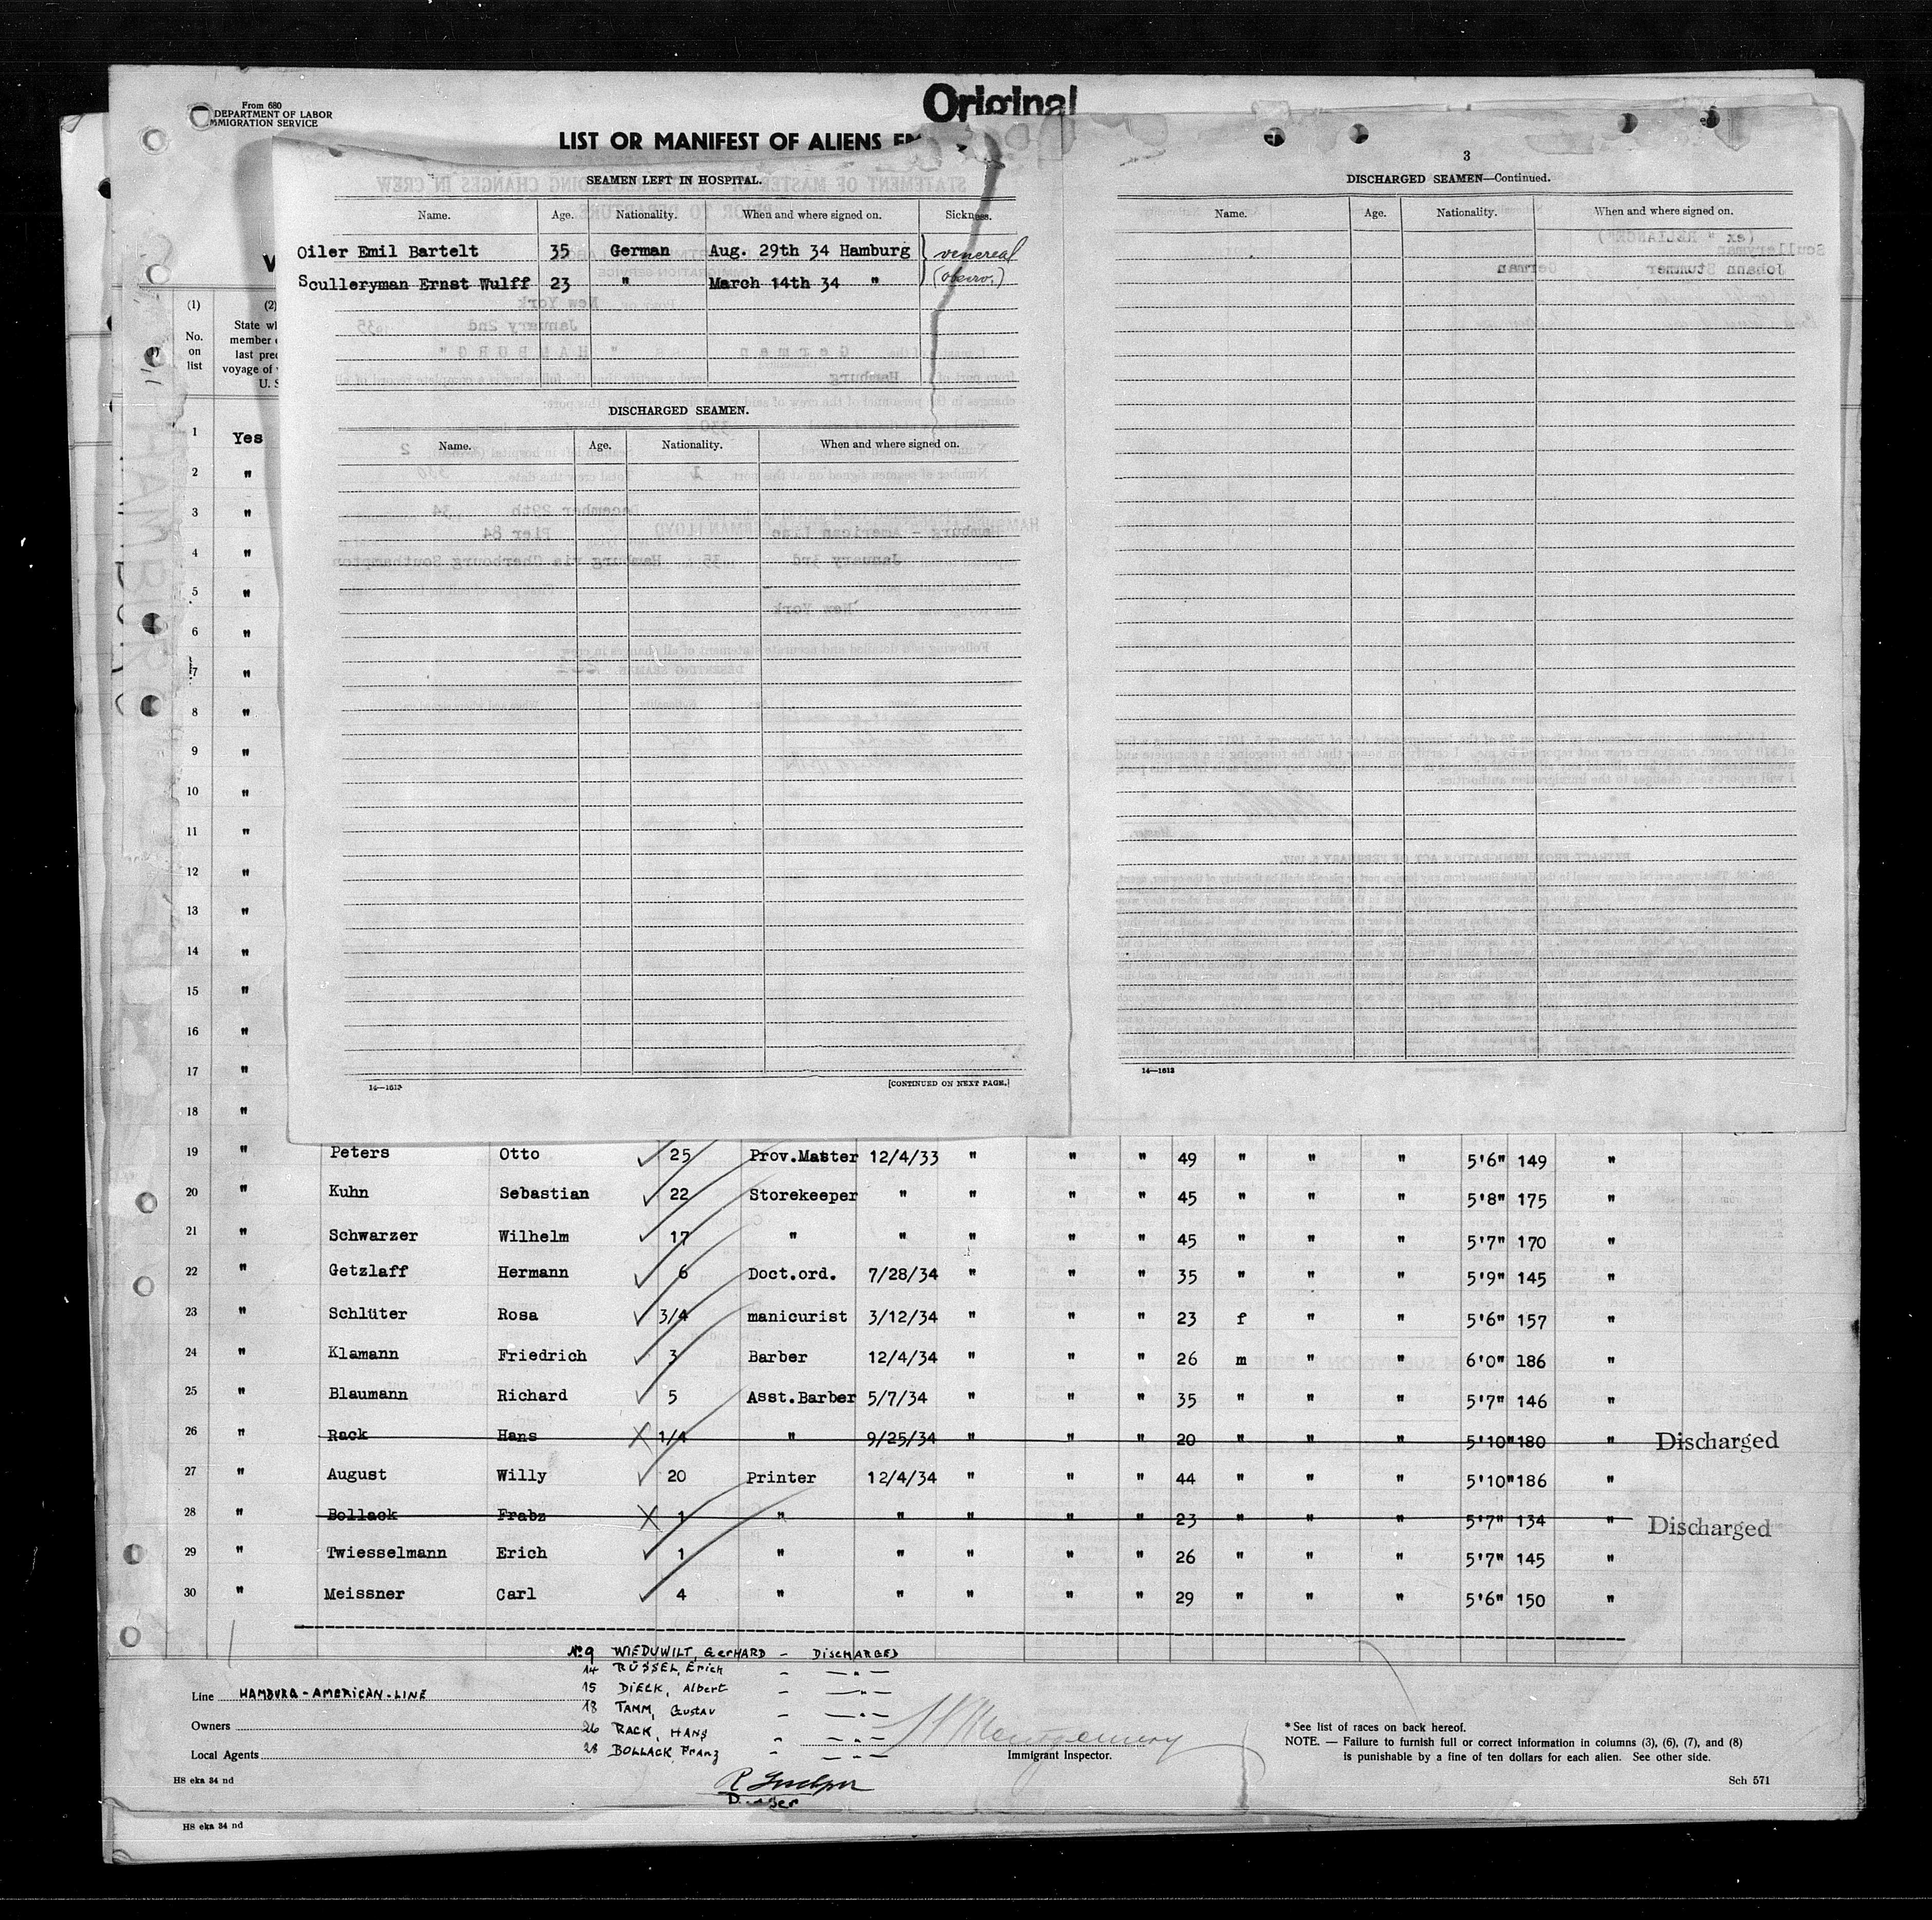 Original
From 680
DEPARTMENT OF LABOR
IMMIGRATION SERVICE
LIST OR MANIFEST OF ALIENS EM
SEAMEN LEFT IN HOSPITAL.
Name. Age. Nationality. When and where signed on. Sickness.
Oiler Emil Bartelt 35 German Aug. 29th 34 Hamburg venereal
Sculleryman Ernst Wulff 23 " March 14th 34 " (observ.)
DISCHARGED SEAMEN.
Name. Age. Nationality. When and where signed on.
14—1613
[CONTINUED ON NEXT PAGE.]
3
DISCHARGED SEAMEN—Continued.
Name. Age. Nationality. When and where signed on.
14—1613
(1) (2)
No. on list
State wh
member
last prec
voyage of
U. S
1 Yes
2 "
3 "
4 "
5 "
6 "
7 "
8 "
9 "
10 "
11 "
12 "
13 "
14 "
15 "
16 "
17 "
18 "
19 " Peters Otto 25 Prov.Master 12/4/33 " " " 49 " " " 5'6" 149 "
20 " Kuhn Sebastian 22 Storekeeper " " " " 45 " " " 5'8" 175 "
21 " Schwarzer Wilhelm 17 " " " " " 45 " " " 5'7" 170 "
22 " Getzlaff Hermann 6 Doct.ord. 7/28/34 " " " 35 " " " 5'9" 145 "
23 " Schlüter Rosa 3/4 manicurist 3/12/34 " " " 23 f " " 5'6" 157 "
24 " Klamann Friedrich 3 Barber 12/4/34 " " " 26 m " " 6'0" 186 "
25 " Blaumann Richard 5 Asst.Barber 5/7/34 " " " 35 " " " 5'7" 146 "
26 " Rack Hans 1/4 " 9/25/34 " " " 20 " " " 5'10" 180 " Discharged
27 " August Willy 20 Printer 12/4/34 " " " 44 " " " 5'10" 186 "
28 " Bollack Frabz 1 " " " " " 23 " " " 5'7" 134 " Discharged
29 " Twiesselmann Erich 1 " " " " " 26 " " " 5'7" 145 "
30 " Meissner Carl 4 " " " " " 29 " " " 5'6" 150 "
No 9 WIEDUWILT, GERHARD - DISCHARGED
14 RÜSSEL, Erich - — " —
15 DIECK, Albert - — " —
18 TAMM, Gustav - — " —
26 RACK, HANS - — " —
28 BOLLACK, Franz - — " —
Line HAMBURG-AMERICAN-LINE
Owners
Local Agents
Montgomery
Immigrant Inspector.
* See list of races on back hereof.
NOTE. — Failure to furnish full or correct information in columns (3), (6), (7), and (8)
is punishable by a fine of ten dollars for each alien. See other side.
HS eka 34 nd
Sch 571
HS eka 34 nd